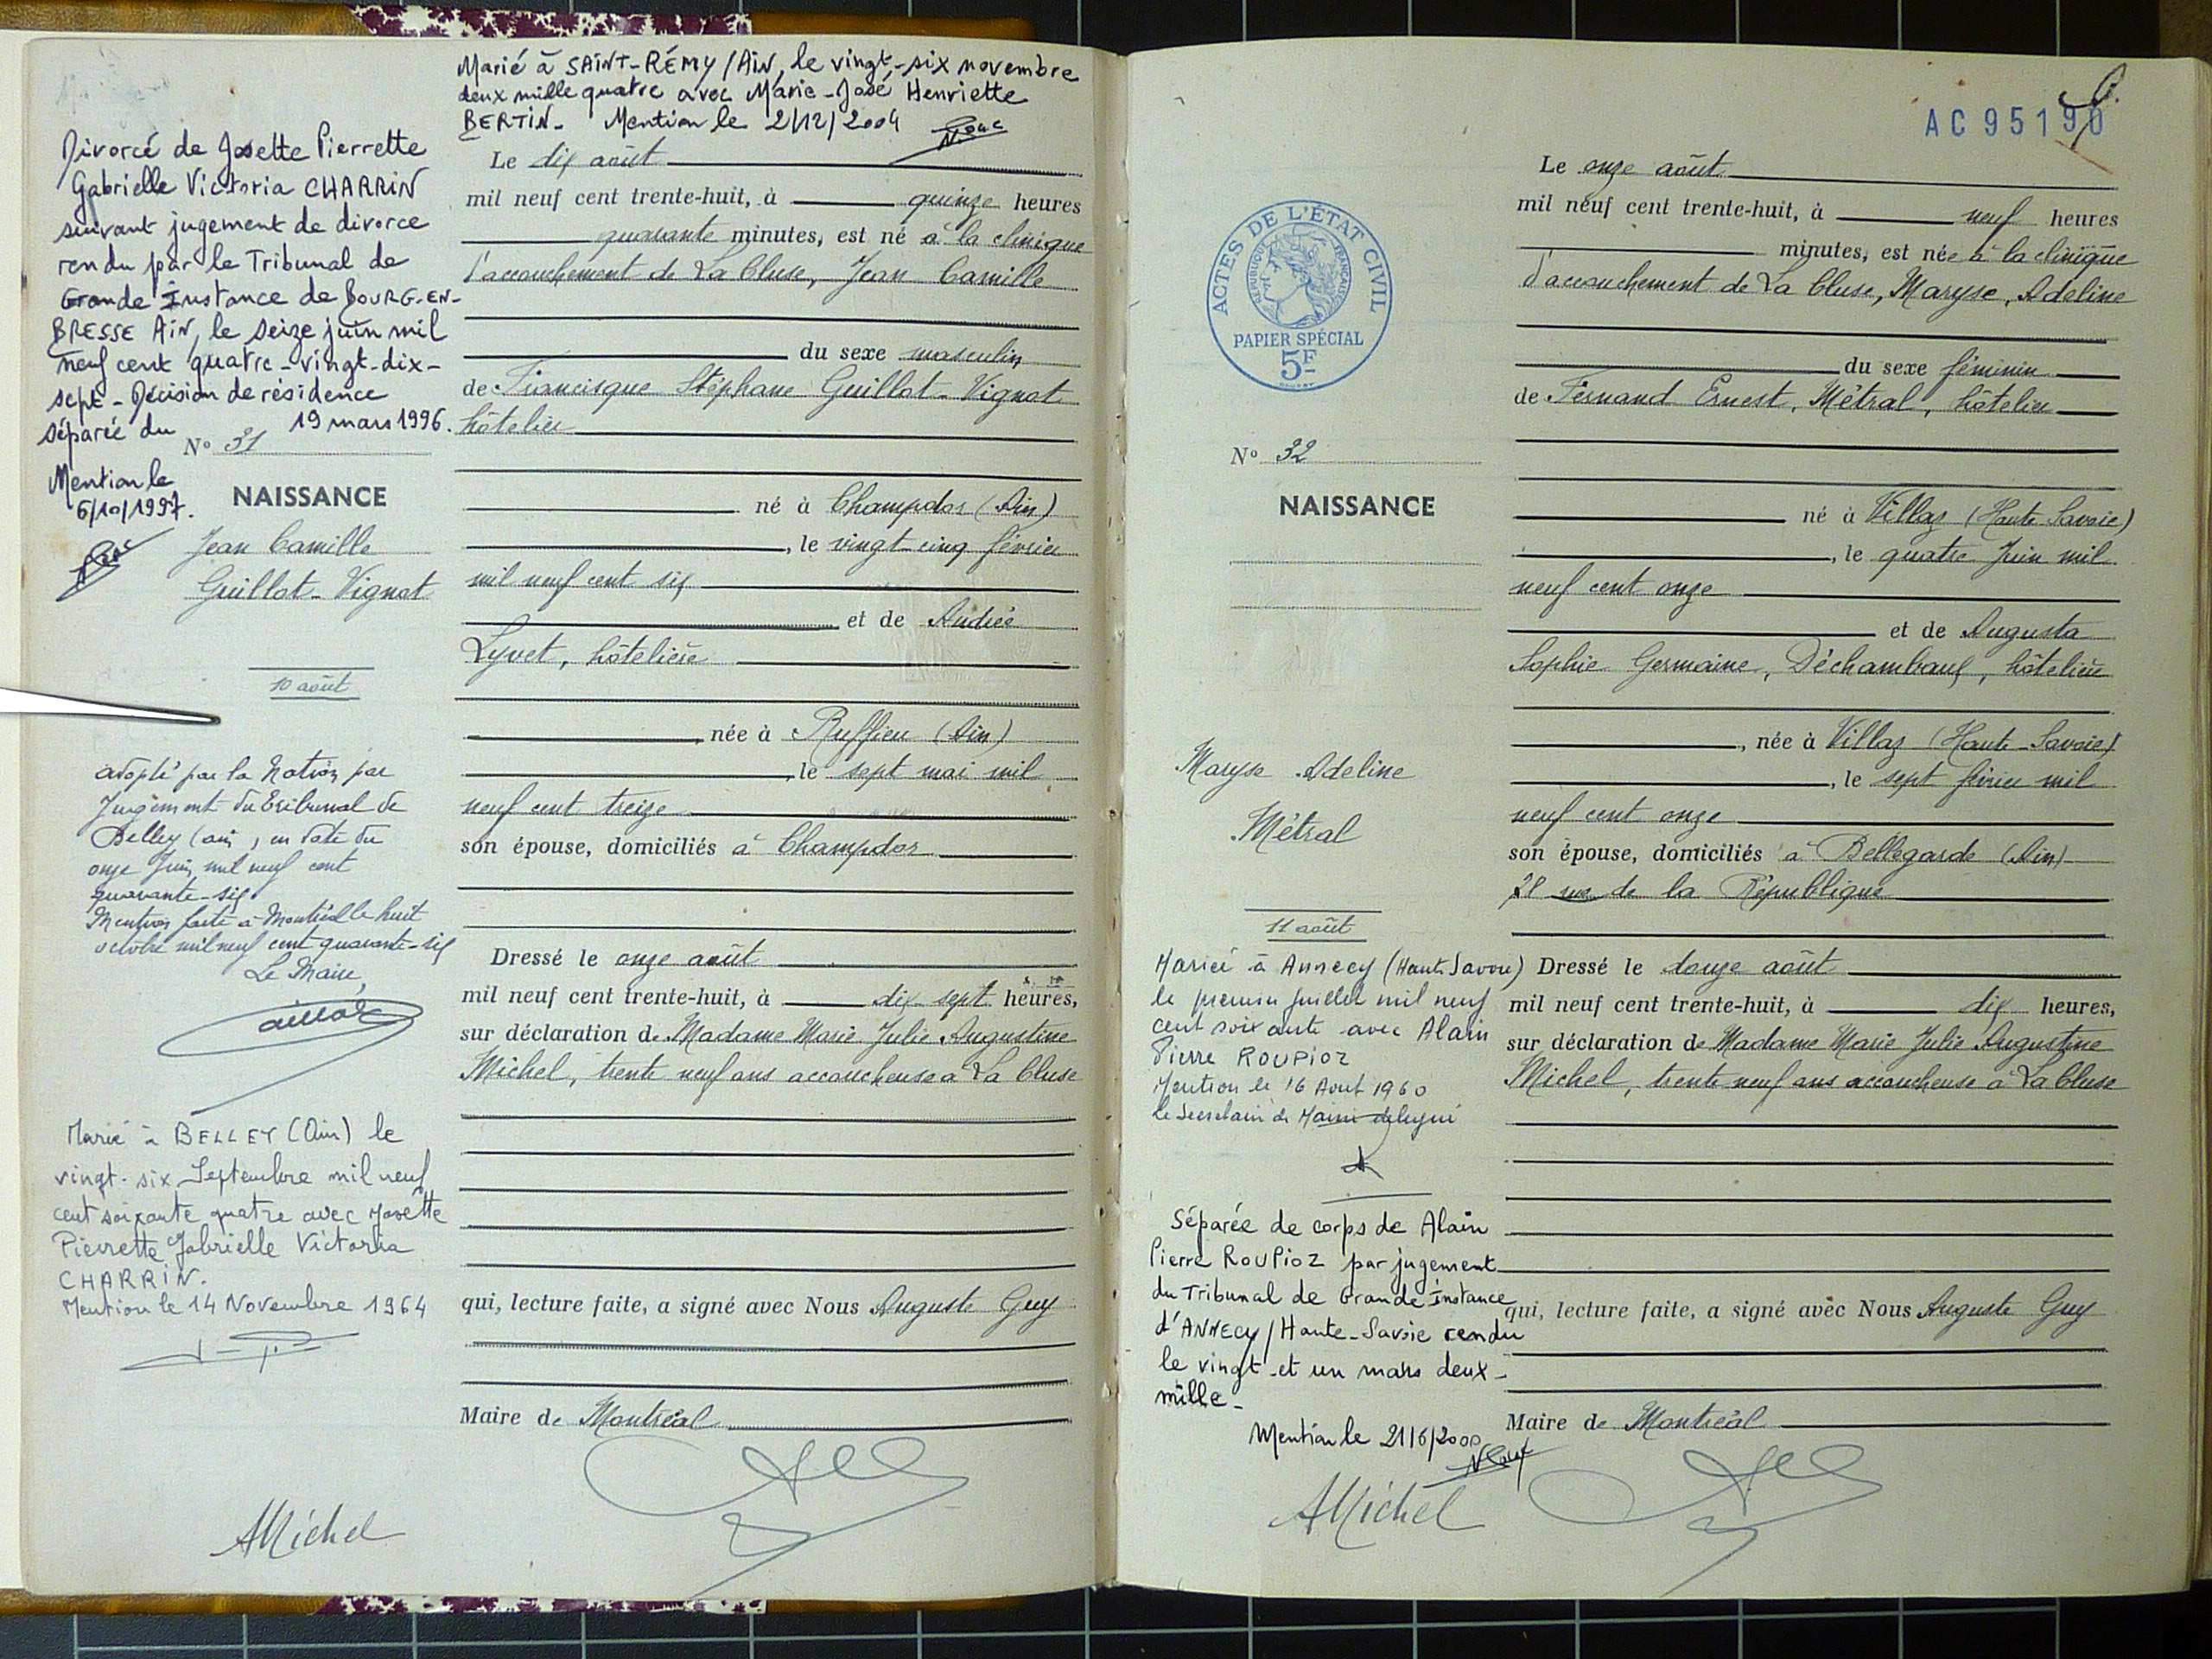 Marié à SAINT-RÉMY/AIN, le vingt-six novembre
deux mille quatre avec Marie-José Henriette
BERTIN. Mention le 2/12/2004
Divorcé de Josette Pierrette
Gabrielle Victoria CHARRIN
suivant jugement de divorce
rendu par le Tribunal de
Grande Instance de BOURG-EN-
BRESSE AIN, le seize juin mil
neuf cent quatre-vingt-dix-
sept - Décision de résidence
séparée du 19 mars 1996.
Mention le
6/10/1997.
No 31
NAISSANCE
Jean Camille
Guillot-Vignot
10 août
adopté par la Nation par
Jugement du Tribunal de
Belley (ain), en date du
onze Juin mil neuf cent
quarante-six.
Mention faite à Montréal le huit
octobre mil neuf cent quarante-six
Le Maire,
Marié à BELLEY (Ain) le
vingt-six Septembre mil neuf
cent soixante quatre avec Josette
Pierrette Gabrielle Victoria
CHARRIN.
Mention le 14 Novembre 1964
AMichel
Le dix août
mil neuf cent trente-huit, à quinze heures
quarante minutes, est né à la clinique
d'accouchement de La Cluse, Jean Camille
du sexe masculin
de Francisque Stéphane Guillot-Vignot
hôtelier
né à Champdor (Ain)
, le vingt-cinq février
mil neuf cent six
et de Andrée
Lyvet, hôtelière
, née à Ruffieu (Ain)
, le sept mai mil
neuf cent treize
son épouse, domiciliés à Champdor
Dressé le onze août
mil neuf cent trente-huit, à dix-sept heures,
sur déclaration de Madame Marie Julie Augustine
Michel, trente neuf ans accoucheuse à La Cluse
qui, lecture faite, a signé avec Nous Auguste Guy
Maire de Montréal
AC 95190
ACTES DE L'ÉTAT CIVIL
RÉPUBLIQUE FRANÇAISE
PAPIER SPÉCIAL
5F
No 32
NAISSANCE
Maryse Adeline
Métral
11 août
Mariée à Annecy (Haute Savoie)
le premier juillet mil neuf
cent soixante avec Alain
Pierre ROUPIOZ
Mention le 16 Aout 1960
le Secrétaire de Mairie délégué
Séparée de corps de Alain
Pierre ROUPIOZ par jugement
du Tribunal de Grande Instance
d'ANNECY/Haute-Savoie rendu
le vingt-et un mars deux-
mille-
Mention le 21/6/2000
AMichel
Le onze août
mil neuf cent trente-huit, à neuf heures
minutes, est née à la clinique
d'accouchement de La Cluse, Maryse, Adeline
du sexe féminin
de Fernand Ernest, Métral, hôtelier
né à Villaz (Haute Savoie)
, le quatre Juin mil
neuf cent onze
et de Augusta
Sophie Germaine, Déchamboux, hôtelière
, née à Villaz (Haute-Savoie)
, le sept février mil
neuf cent onze
son épouse, domiciliés à Bellegarde (Ain)
28 rue de la République
Dressé le douze août
mil neuf cent trente-huit, à dix heures,
sur déclaration de Madame Marie Julie Augustine
Michel, trente neuf ans accoucheuse à La Cluse
qui, lecture faite, a signé avec Nous Auguste Guy
Maire de Montréal